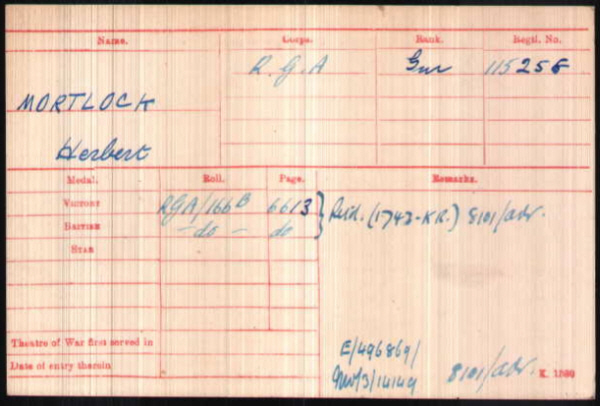 Name. Corps. Rank. Regtl. No.
R.G.A Gnr 115256
MORTLOCK
Herbert
Medal. Roll. Page. Remarks.
VICTORY RGA/166B 6613 } Retd. (1743-KR.) 8101/adv.
BRITISH - do - do
STAR
Theatre of War first served in
Date of entry therein
E/496869/
8101/adv. K 1380